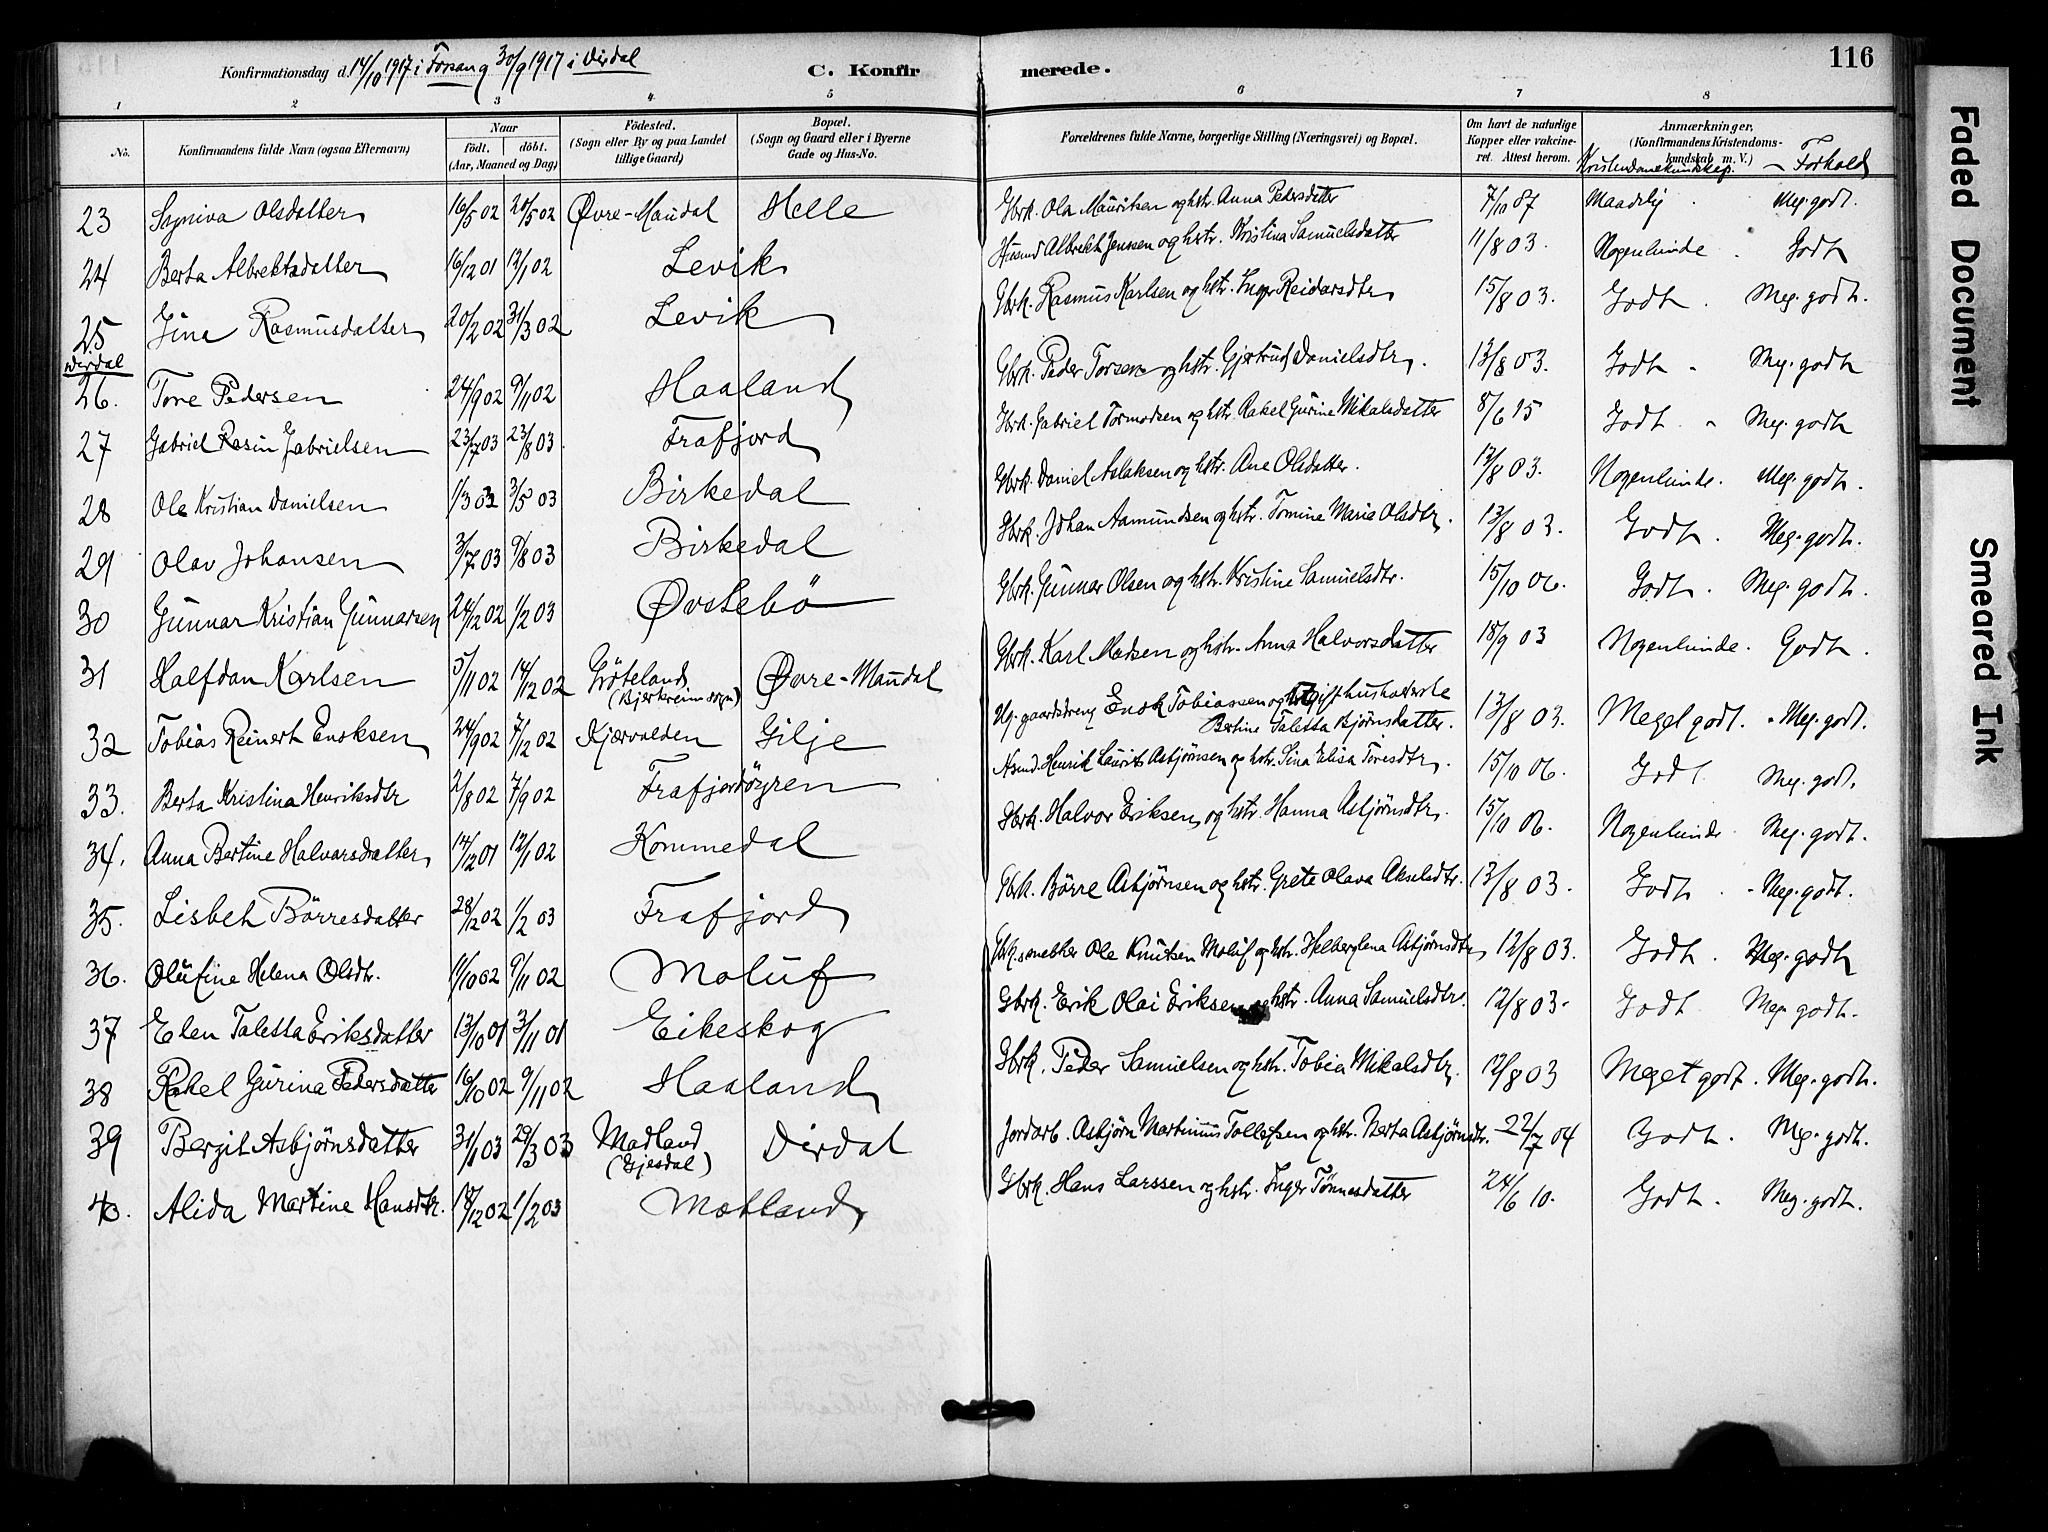 Konfirmationsdag d. 14/10 1917 i Forsan og 30/9 1917 i Dirdal
C. Konfir merede. 116
1 2 3 4 5 6 7 8
No. Konfirmandens fulde Navn (ogsaa Efternavn) Naar født. døbt. (Aar, Maaned og Dag) Födested. (Sogn eller By og paa Landet tillige Gaard) Bopæl. (Sogn og Gaard eller i Byerne Gade og Hus-No. Forældrenes fulde Navne, borgerlige Stilling (Næringsvei) og Bopæl. Om havt de naturlige Kopper eller vakcineret. Attest herom. Anmærkninger, (Konfirmandens Kristendomskundskab m. V.)
Kristendomskundskap. - Forhold
23 Synniva Olsdatter 16/5 02 20/5 02 Øvre-Maudal Helle Gbrk. Ola Mauritsen og hstr. Anna Pedersdatter 7/10 87 Maadelig. Meg. godt.
24 Berta Albrektsdatter 16/12 01 12/1 02 Levik Husmd Albrekt Jenssen og hstr. Kristina Samuelsdatter 11/8 03. Nogenlunde. Godt
25 Gina Rasmusdatter 20/2 02 31/3 02 Levik Gbrk. Rasmus Karlsen og hstr. Inger Reidarsdtr 15/8 03. Godt. Meg. godt.
Dirdal
26. Tore Pedersen 24/9 02 9/11 02 Haaland Gbrk. Peder Torsen og hstr. Gjertrud Danielsdtr. 13/8 03. Godt - Meg. godt
27 Gabriel Rasin Gabrielsen 23/7 03 23/8 03. Frafjord Gbrk. Gabriel Tormodsen og hstr. Rakel Gurine Mikalsdatter 8/6 15 Godt. - Meg. godt
28 Ole Kristian Danielsen 1/3 03 3/5 03 Birkedal Gbrk. Daniel Aslaksen og hstr. Ane Olsdatter. 12/8 03. Nogenlunde. Meg. godt.
29 Olav Johansen 3/7 03 9/8 03 Birkedal Gbrk. Johan Aamundsen og hstr. Tomine Maria Olsdtr. 13/8 03. Godt. Meg. godt.
30 Gunnar Kristian Gunnarsen 24/12 02 1/2 03 Øvstebö Gbrk. Gunnar Olsen og hstr. Kristine Samuelsdtr. 15/10 06. Godt. Meg. godt.
31 Halfdan Karlsen 5/11 02 14/12 02 Gröteland (Bjerkreim sogn) Øvre-Maudal Gbrk. Karl Madsen og hstr. Anna Halvorsdatter 18/9 03 Nogenlunde. Godt.
32 Tobias Reinert Enoksen 24/9 02 7/12 02 Kjærvolden Gilje Ug. gaardsdreng Enok Tobiassen og ugift husholderske Bertine Taletta Bjørnsdatter. 13/8 03. Meget godt. - Meg. godt.
33. Berta Kristina Henriksdtr 2/8 02 7/9 02 Frafjordøyren Henrik Laurits Asbjørnsen og hstr. Sina Elisa Toresdtr. 15/10 06. Godt. Meg. godt.
34. Anna Bertine Halvarsdatter 14/12 01 12/1 02 Kommedal Gbrk. Halvor Eriksen og hstr. Hanna Asbjørnsdtr. 15/10 06. Nogenlunde. Meg. godt.
35. Lisbet Börresdatter 28/12 02 1/2 03 Frafjord Gbrk. Börre Asbjørnsen og hstr. Grete Olava Akselsdtr. 13/8 03. Godt. - Meg. godt.
36. Olufine Helena Olsdtr. 11/10 02 9/11 02 Moluf Ole Knutsen Moluf og hstr. Asbjørnsdtr 12/8 03. Godt. Meg. godt
37 Elen Taletta Eriksdatter 13/10 01 3/11 01 Eikeskog Gbrk. Erik Olai Eriksen og hstr. Anna Samuelsdtr. 12/8 03. Godt. Meg. godt.
38 Rakel Gurina Pedersdatter 16/10 02 9/11 02 Haaland Gbrk. Peder Samuelsen og hstr. Tobia Mikalsdtr. 12/8 03 Meget godt. Meg. godt.
39 Bergit Asbjörnsdatter 31/1 03 29/3 03 Madland (Gjesdal) Dirdal Jordarb. Asbjörn Martinius Tollefsen og hstr. Berta Asbjørnsdtr. 22/7 04 Godt. Meg. godt.
40. Alida Martine Hansdtr. 18/12 02 1/2 03 Motland Gbrk. Hans Larssen og hstr. Inger Tönnesdatter 24/6 10. Godt. Meg. godt.
Faded Document
Smeared Ink